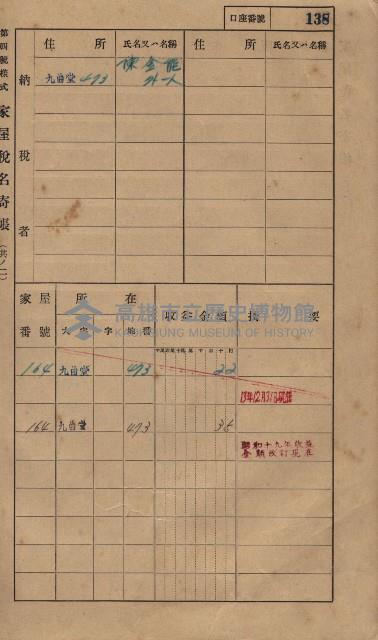 口座番號 138
第四號樣式 家屋稅名寄帳 (共ノ二)
納稅者
住所 氏名又ハ名稱 住所 氏名又ハ名稱
九曲堂 493 陳金能
外一人
家屋番號 所在 收益金額 摘要
大字 字 地番
164 九曲堂 493 22
19年12月31日
164 九曲堂 493 36
昭和十九年收益
金額改訂現在
高雄市立歷史博物館
KAOHSIUNG MUSEUM OF HISTORY